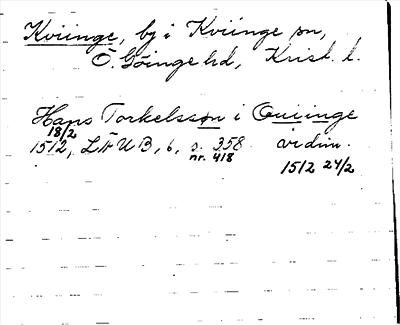 Kviinge, by i Kviinge sn,
Ö. Göinge hd, Krist. l.
Hans Torkelsson i Quiinge
18/2
1512, LÄUB, 6, s. 358 vidim.
nr. 418
1512 24/2